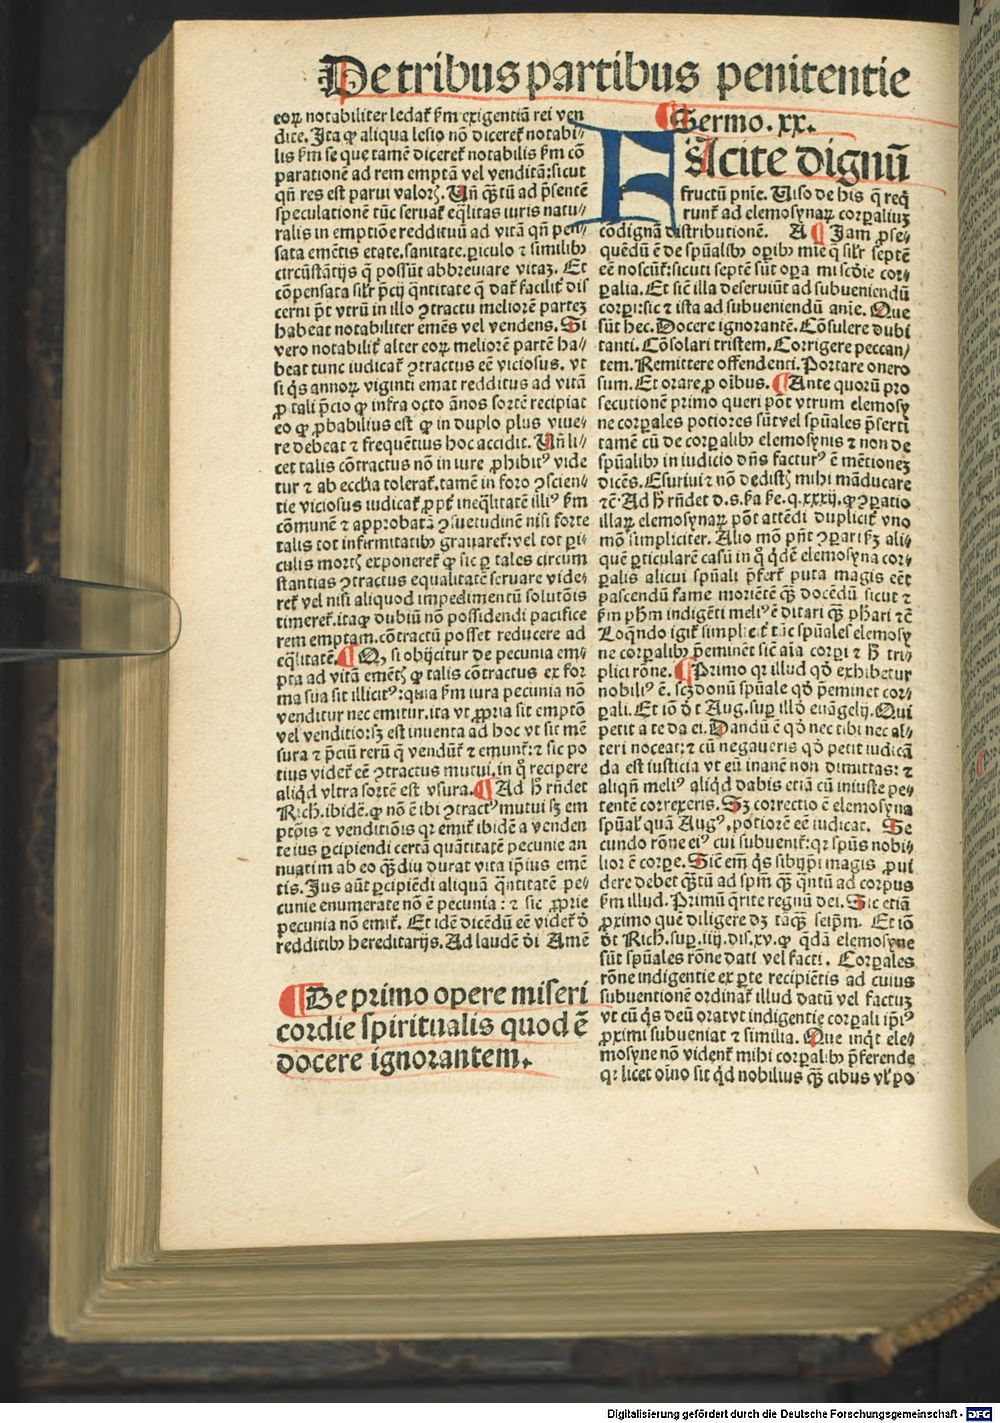 De tribus partibus penitentie
eoꝝ notabiliter ledat᷑ ẜm exigentiā rei ven
dite. Ita ꝙ aliqua lesio nō diceret᷑ notabi⸗
lis ẜm se que tamē diceret᷑ notabilis ẜm cō
parationē ad rem emptā vel venditā: sicut
qn̄ res est parui valorꝭ. Uñ q̄ꝫtū ad p̄sentē
speculationē tūc seruat᷑ eq̄litas iuris natu⸗
ralis in emptiōe reddituū ad vitā qn̄ pen⸗
sata emētis etate, sanitate, ꝑiculo ⁊ similibꝰ
circūstātijs q̄ possūt abbreuiare vitaꝫ. Et
cōpensata sil'r p̄cij q̄ntitate q̄ dat᷑ facilit᷑ dis
cerni p̄t vtrū in illo ꝯtractu meliorē parteꝫ
habeat notabiliter emēs vel vendens. Si
vero notabilit᷑ alter eoꝝ meliorē partē ha⸗
beat tunc iudicat᷑ ꝯtractus eē viciosus. vt
si q̇s annoꝝ viginti emat redditus ad vitā
ꝓ tali p̄cio ꝙ infra octo ānos sortē recipiat
eo ꝙ ꝓbabilius est ꝙ in duplo plus viue⸗
re debeat ⁊ frequētius hoc accidit. Uñ li⸗
cet talis cōtractus nō in iure ꝓhibitꝰ vide
tur ⁊ ab eccl'ia tolerat᷑. tamē in foro ꝯscien⸗
tie viciosus iudicat᷑ ꝓpt᷑ ineq̄litatē illiꝰ ẜm
cōmunē ⁊ approbatā ꝯsuetudinē nisi forte
talis tot infirmitatibꝰ grauaret᷑: vel tot ꝑi⸗
culis mortꝭ exponeret᷑ ꝙ sic ꝑ tales circum
stantias ꝯtractus equalitatē seruare vide⸗
ret᷑ vel nisi aliquod impedimentū solutōis
timeret᷑. itaꝙ dubiū nō possidendi pacifice
rem emptam. cōtractū posset reducere ad
eq̄litatē. ¶ Qꝫ si obijcitur de pecunia em⸗
pta ad vitā emētꝭ ꝙ talis cōtractus ex for
ma sua sit illicitꝰ: quia ẜm iura pecunia nō
venditur nec emitur. ita vt ꝓpria sit emptō
vel venditio: sꝫ est inuenta ad hoc vt sit mē
sura ⁊ p̄ciū rerū q̄ vendūt᷑ ⁊ emunt᷑: ⁊ sic po
tius videt᷑ eē ꝯtractus mutui, in q̇ recipere
aliq̇d vltra sortē est vsura. ¶ Ad h̄ rn̄det
Rich. ibidē. ꝙ nō ē ibi ꝯtractꝰ mutui sꝫ em
ptōis ⁊ venditiōis qꝛ emit᷑ ibidē a venden
te ius ꝑcipiendi certā quātitatē pecunie an
nuatim ab eo q̄ꝫdiu durat vita ip̄ius emē
tis. Ius aūt ꝑcipiēdi aliquā q̄ntitatē pe⸗
cunie enumerate nō ē pecunia: ⁊ sic ꝓprie
pecunia nō emit᷑. Et idē dicēdū eē videt᷑ d̄
redditibꝰ hereditarijs. Ad laudē dei Amē
¶ De primo opere miseri
cordie spiritualis quod ē
docere ignorantem.
¶ Sermo. xx.
Facite dignū
fructū pn̄ie. Uiso de his q̄ req̇
runt᷑ ad elemosynaꝝ corꝑaliuꝫ
cōdignā distributionē. A ¶ Iam ꝓse⸗
quēdū ē de sp̄ualibꝰ oꝑibꝰ mīe q̄ sil'r septē
eē noscūt᷑: sicuti septē sūt oꝑa mīscdīe cor⸗
ꝑalia. Et sic̄ illa deseruiūt ad subueniendū
corꝑi: sic ⁊ ista ad subueniendū anīe. Que
sūt hec. Docere ignorantē. Cōsulere dubi
tanti. Cōsolari tristem. Corrigere peccan⸗
tem. Remittere offendenti. Portare onero
sum. Et orare ꝓ oībus. ¶ Ante quorū pro
secutionē primo queri pōt vtrum elemosy
ne corꝑales potiores sūt vel sp̄uales p̄serti
tamē cū de corꝑalibꝰ elemosynis ⁊ non de
sp̄ualibꝰ in iudicio dn̄s facturꝰ ē mētioneꝫ
dicēs. Esuriui ⁊ non dedistꝭ mihi māducare
⁊c̄. Ad h̄ rn̄det d. s. ẜa ẜe. q. xxxij. ꝙ ꝯꝑatio
illaꝝ elemosynaꝝ pōt attēdi duplicit᷑ vno
mō simpliciter. Alio mō pn̄t ꝯparari ẜꝫ ali⸗
quē ꝑticularē casū in q̇ q̇dē elemosyna cor⸗
ꝑalis alicui sp̄uali p̄fert᷑ puta magis eēt
pascendū fame moriētē q̄ꝫ docēdū sicut ⁊
ẜm ph̄m indigēti meliꝰ ē ditari q̄ꝫ ph̄ari ⁊c̄
Loq̄ndo igit᷑ simplicit᷑ tūc sp̄uales elemosy
ne corꝑalibꝰ p̄eminēt sic̄ aīa corꝑi ⁊ h̄ tri⸗
plici rōne. ¶ Primo qꝛ illud qd̄ exhibetur
nobiliꝰ ē. scꝫ donū sp̄uale qd̄ p̄eminet cor⸗
ꝑali. Et iō d̄t Aug. suꝑ illd̄ euāgelij. Qui
petit a te da ei. Dandū ē qd̄ nec tibi nec al⸗
teri noceat: ⁊ cū negaueris qd̄ petit iudicā
da est iusticia vt eū inanē non dimittas: ⁊
aliqn̄ meliꝰ aliq̇d dabis etiā cū iniuste pe⸗
tentē correxeris. Sꝫ correctio ē elemosyna
sp̄ual' quā Augꝰ. potiorē eē iudicat. Se
cundo rōne eiꝰ cui subuenit᷑: qꝛ sp̄us nobi⸗
lior ē corꝑe. Sic̄ em̄ q̇s sibijp̄i magis ꝓui
dere debet q̄ꝫtū ad sp̄m q̄ꝫ q̄ntū ad corpus
ẜm illud. Primū q̄rite regnū dei. Sic etiā
ꝓximo quē diligere dꝫ tāq̄ꝫ seip̄m. Et iō
d̄t Rich. suꝑ. iiij. dis. xv. ꝙ q̄dā elemosyne
sūt sp̄uales rōne dati vel facti. Corꝑales
rōne indigentie ex ꝑte recipiētis ad cuius
subuentionē ordinat᷑ illud datū vel factuꝫ
vt cū q̇s deū orat vt indigentie corꝑali ip̄iꝰ
ꝓximi subueniat ⁊ similia. Que inq̇t ele⸗
mosyne nō vident᷑ mihi corꝑalibꝰ p̄ferende
qꝛ licet oīno sit q̇d nobilius q̄ꝫ cibus vl' po
Digitalisierung gefördert durch die Deutsche Forschungsgemeinschaft - DFG